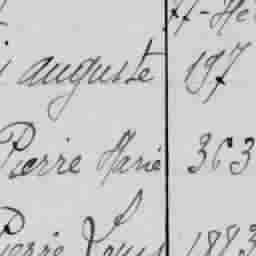 auguste 197
Pierre Marie 363
Pierre Louis 1883